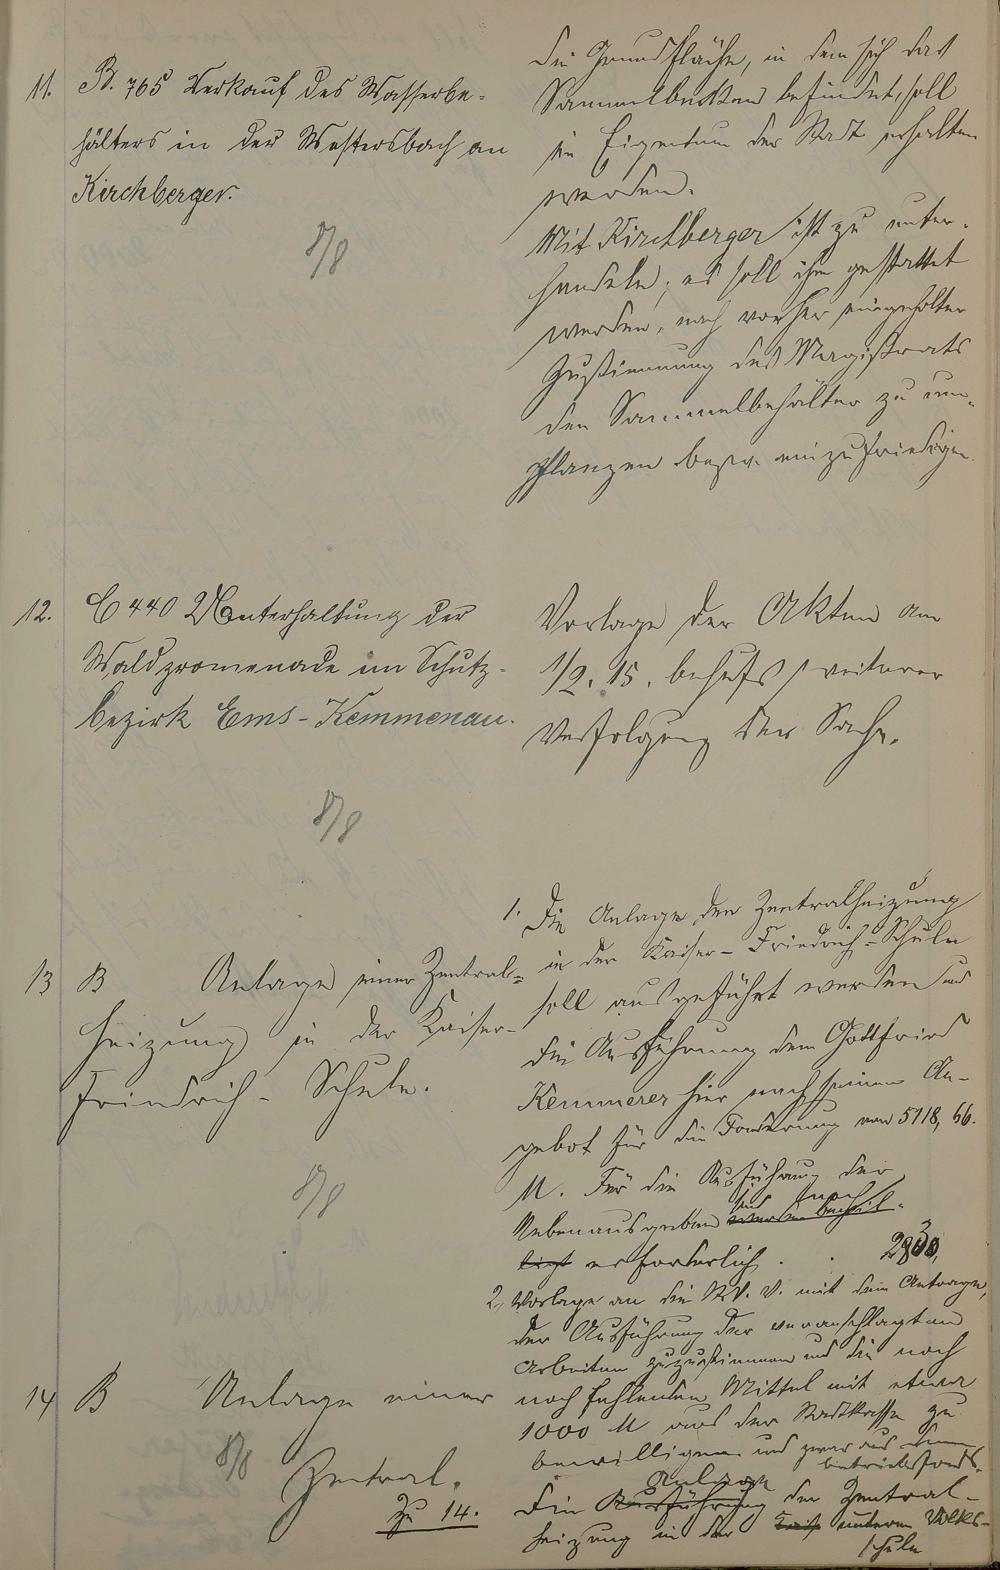 11. B. 765 Verkauf des Wasserbe-
hälters in der Westersbach an
Kirchberger.
8/8
die Grundfläche, in dem sich das
Sammelbecken befindet, soll
im Eigentum der Stadt erhalten
werden.
Mit Kirchberger ist zu unter-
handeln; es soll ihm gestattet
werden, nach vorher eingeholter
Zustimmung des Magistrats
den Sammelbehälter zu um-
pflanzen bezw. einzufriedigen.
12. C 440 Unterhaltung der
Waldpromenade im Schutz-
bezirk Ems-Kemmenau.
8/8
Vorlage der Akten am
1/2. 15. behufs weiterer
Verfolgung der Sache.
13 B Anlage einer Zentral-
heizung in der Kaiser-
Friedrich-Schule.
8/8
1. Die Anlage der Zentralheizung
in der Kaiser-Friedrich-Schule
soll ausgeführt werden und
die Ausführung dem Gottfried
Kemmerer hier nach seinem An-
gebot für die Forderung von 5118,66.
M. Für die Ausführung der
sind noch
Nebenausgaben
erforderlich . .
2, Vorlage an die St. V. V. mit dem Antrage,
der Ausführung der veranschlagten
Arbeiten zuzustimmen und die noch
noch fehlenden Mittel mit etwa
1000 M aus der Stadtkasse zu
bewilligen und zwar aus dem
betriebsfonds.
14 B Anlage einer
8/8
Zentral.
Zu 14.
Anlage
Die Ausführung der Zentral-
heizung in der unteren Volks-
schule